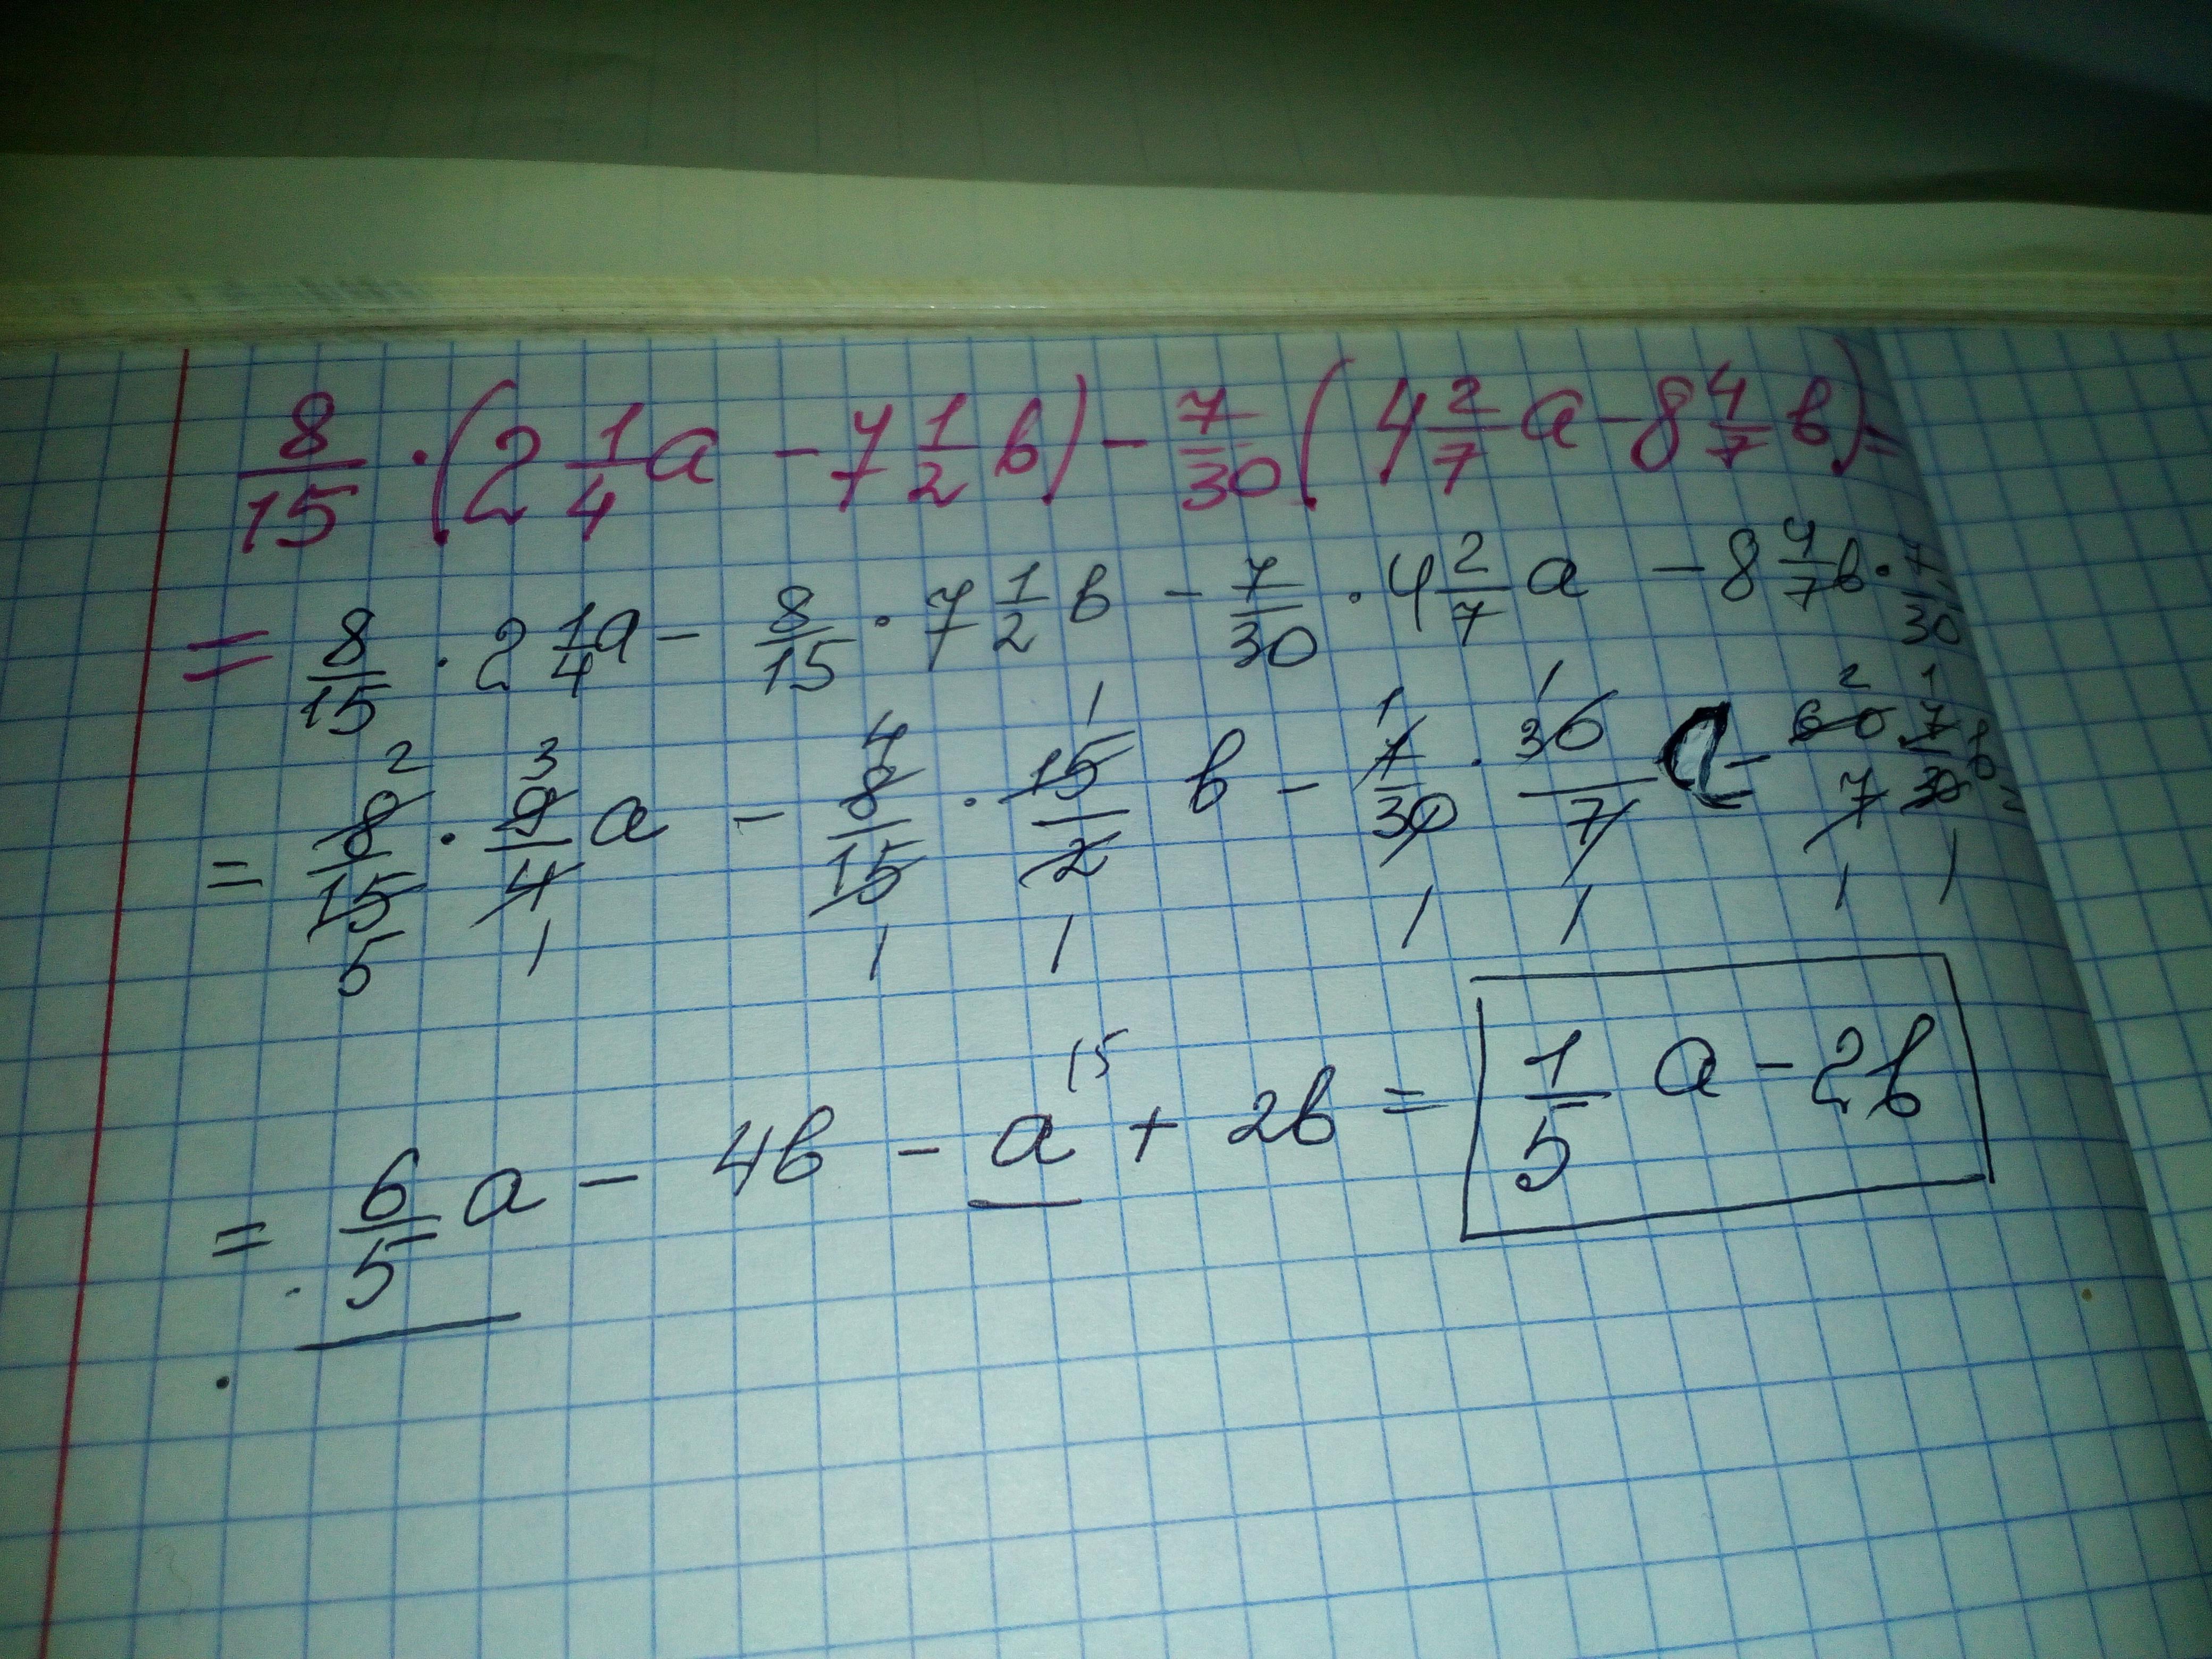 8/15 · (2 1/4 a − 7 1/2 b) − 7/30 (4 2/7 a − 8 4/7 b) =
= 8/15 · 2 1/4 a − 8/15 · 7 1/2 b − 7/30 · 4 2/7 a − 8 4/7 b · 7/30
2 3 4 1 1 1 2 1
= 8/15 · 9/4 a − 8/15 · 15/2 b − 7/30 · 30/7 a − 60/7 7/30 b =
5 1 1 1 1 1 1 1
= 6/5 a − 4b − a 15 + 2b = 1/5 a − 2b